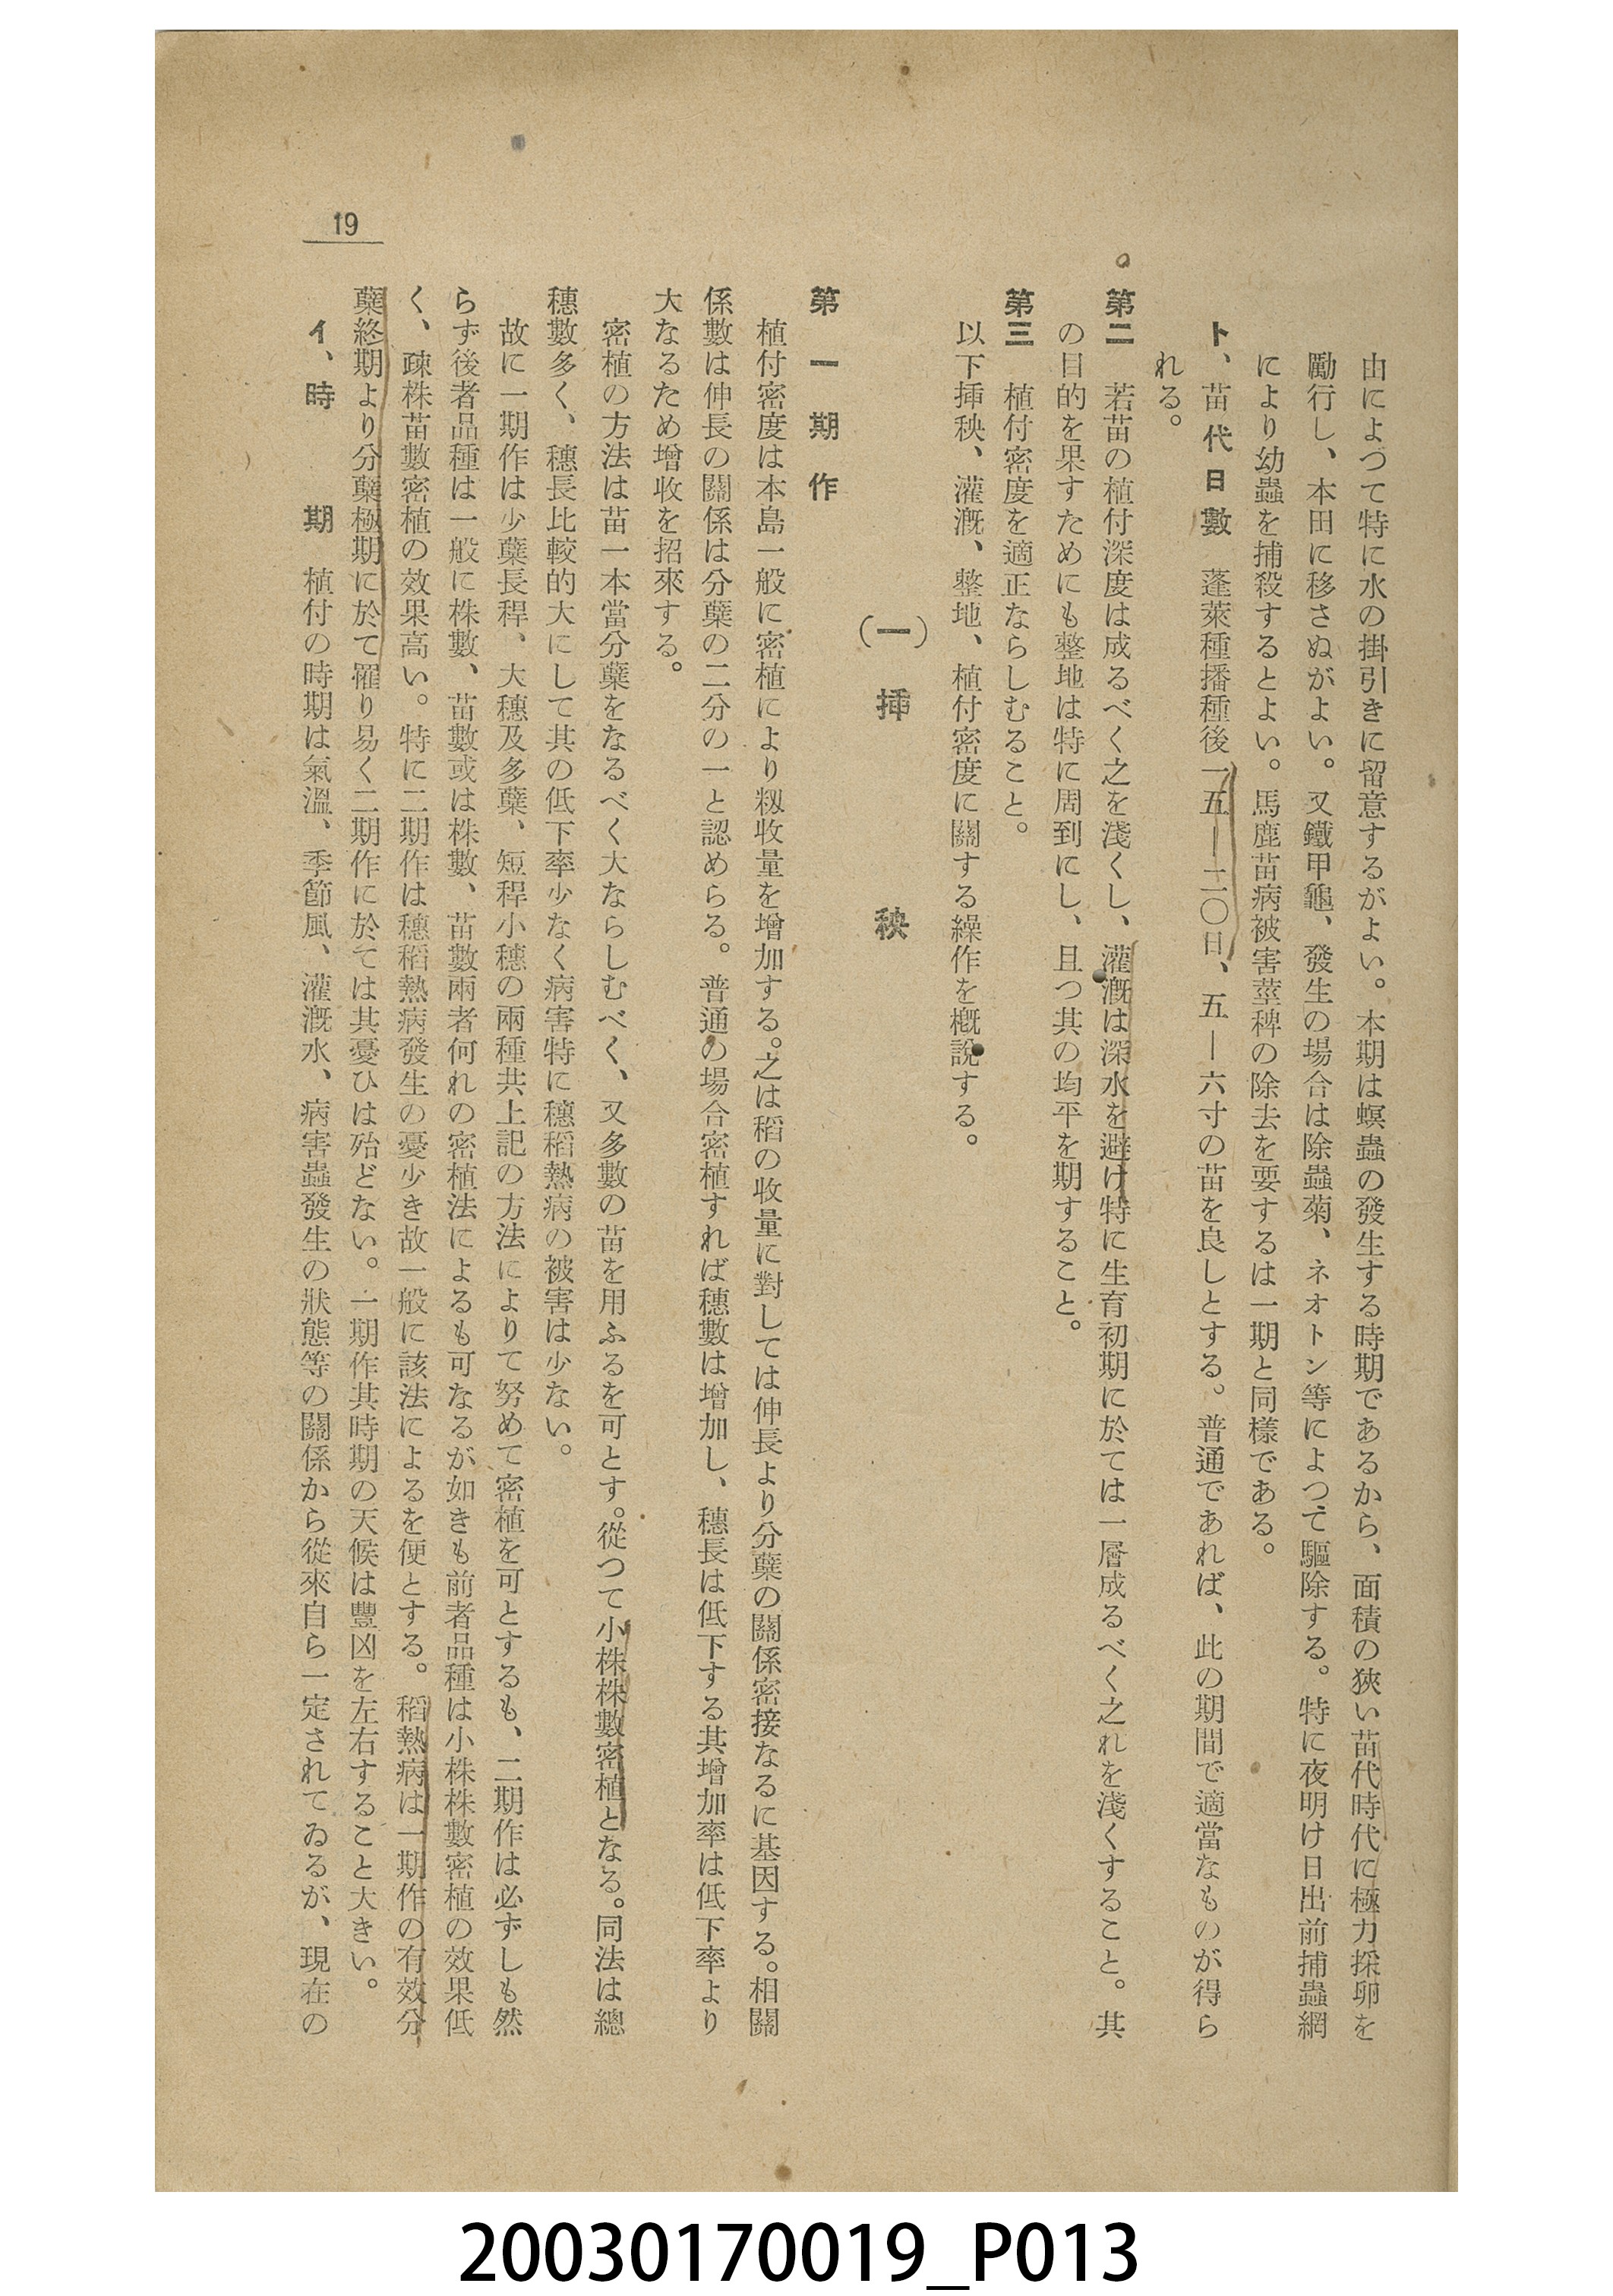 由によつて特に水の掛引きに留意するがよい。本期は螟蟲の發生する時期であるから、面積の狹い苗代時代に極力採卵を
勵行し、本田に移さぬがよい。又鐵甲龜、發生の場合は除蟲菊、ネオトン等によつて驅除する。特に夜明け日出前捕蟲網
により幼蟲を捕殺するとよい。馬鹿苗病被害莖稗の除去を要するは一期と同樣である。
ト、苗代日數　蓬萊種播種後一五―二〇日、五―六寸の苗を良しとする。普通であれば、此の期間で適當なものが得ら
れる。
第二　若苗の植付深度は成るべく之を淺くし、灌漑は深水を避け特に生育初期に於ては一層成るべく之れを淺くすること。其
の目的を果すためにも整地は特に周到にし、且つ其の均平を期すること。
第三　植付密度を適正ならしむること。
以下挿秧、灌漑、整地、植付密度に關する繰作を槪說する。
（一）挿秧
第一期作
植付密度は本島一般に密植により籾收量を增加する。之は稻の收量に對しては伸長より分蘖の關係密接なるに基因する。相關
係數は伸長の關係は分蘖の二分の一と認めらる。普通の場合密植すれば穗數は增加し、穗長は低下する其增加率は低下率より
大なるため增收を招來する。
密植の方法は苗一本當分蘖をなるべく大ならしむべく、又多數の苗を用ふるを可とす。從つて小株株數密植となる。同法は總
穗數多く、穗長比較的大にして其の低下率少なく病害特に穗稻熱病の被害は少ない。
故に一期作は少蘖長稈、大穗及多蘖、短稈小穗の兩種共上記の方法によりて努めて密植を可とするも、二期作は必ずしも然
らず後者品種は一般に株數、苗數或は株數、苗數兩者何れの密植法によるも可なるが如きも前者品種は小株株數密植の效果低
く、疎株苗數密植の效果高い。特に二期作は穗稻熱病發生の憂少き故一般に該法によるを便とする。稻熱病は一期作の有效分
蘖終期より分蘖極期に於て罹り易く二期作に於ては其憂ひは殆どない。一期作其時期の天候は豐凶を左右すること大きい。
イ、時期　植付の時期は氣溫、季節風、灌漑水、病害蟲發生の狀態等の關係から從來自ら一定されてゐるが、現在の
19
20030170019_P013